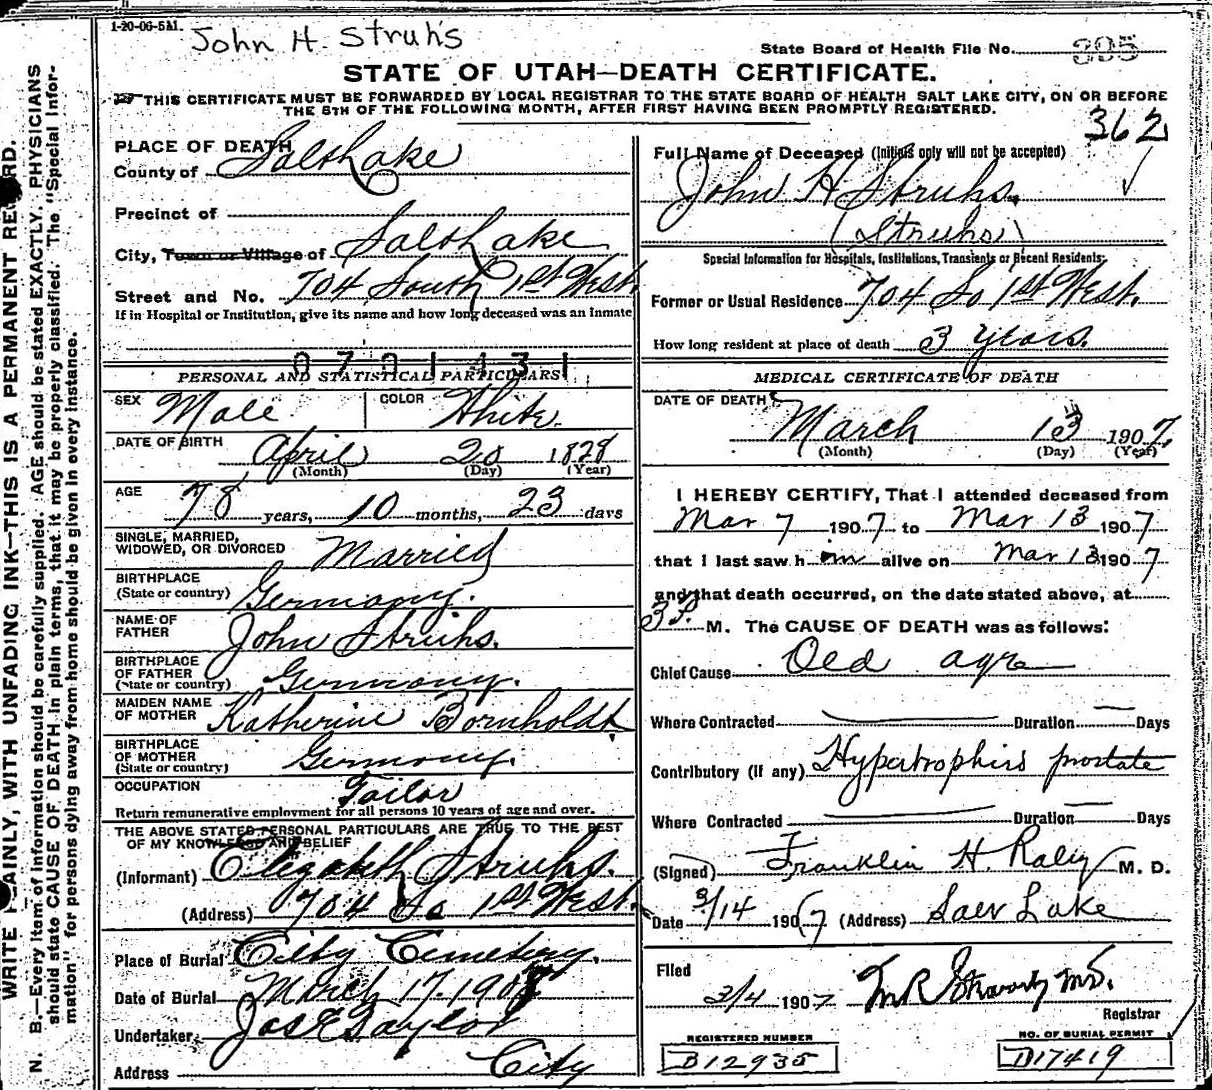 1-20-06-5M.
John H. Struhs
State Board of Health File No. 395
STATE OF UTAH—DEATH CERTIFICATE.
THIS CERTIFICATE MUST BE FORWARDED BY LOCAL REGISTRAR TO THE STATE BOARD OF HEALTH SALT LAKE CITY, ON OR BEFORE
THE 5TH OF THE FOLLOWING MONTH, AFTER FIRST HAVING BEEN PROMPTLY REGISTERED.
362
PLACE OF DEATH
County of Salt Lake
Precinct of
City, Town or Village of Salt Lake
Street and No. 704 South 1st West.
If in Hospital or Institution, give its name and how long deceased was an inmate
0701431
PERSONAL AND STATISTICAL PARTICULARS
SEX Male COLOR White.
DATE OF BIRTH April 20 1828
(Month) (Day) (Year)
AGE 78 years, 10 months, 23 days
SINGLE, MARRIED,
WIDOWED, OR DIVORCED Married
BIRTHPLACE
(State or country) Germany.
NAME OF
FATHER John Struhs.
BIRTHPLACE
OF FATHER
(State or country) Germany.
MAIDEN NAME
OF MOTHER Katherine Bornholdt.
BIRTHPLACE
OF MOTHER
(State or country) Germany.
OCCUPATION Tailor
Return remunerative employment for all persons 10 years of age and over.
THE ABOVE STATED PERSONAL PARTICULARS ARE TRUE TO THE BEST
OF MY KNOWLEDGE AND BELIEF
(Informant) Elizabeth Struhs.
(Address) 704 So 1st West.
Place of Burial City Cemetery.
Date of Burial March 17. 1907
Undertaker Jos E Taylor
Address City
Full Name of Deceased (Initials only will not be accepted)
John H Struhs.
(Struhs)
Special Information for Hospitals, Institutions, Transients or Recent Residents:
Former or Usual Residence 704 So 1st West.
How long resident at place of death 3 years.
MEDICAL CERTIFICATE OF DEATH
DATE OF DEATH
March 13 1907.
(Month) (Day) (Year)
I HEREBY CERTIFY, That I attended deceased from
Mar 7 1907 to Mar 13 1907
that I last saw h im alive on Mar 13 1907
and that death occurred, on the date stated above, at
3 P. M. The CAUSE OF DEATH was as follows:
Chief Cause Old age
Where Contracted Duration Days
Contributory (if any) Hypertrophies prostate
Where Contracted Duration Days
(Signed) Franklin H. Raley M. D.
Date 3/14 1907 (Address) Salt Lake
Filed
3/4 1907 M.D.
Registrar
REGISTERED NUMBER
B12935
NO. OF BURIAL PERMIT
D17419
WRITE PLAINLY, WITH UNFADING INK—THIS IS A PERMANENT RECORD.
N. B.—Every item of information should be carefully supplied. AGE should be stated EXACTLY. PHYSICIANS
should state CAUSE OF DEATH in plain terms, that it may be properly classified. The "Special Infor-
mation" for persons dying away from home should be given in every instance.